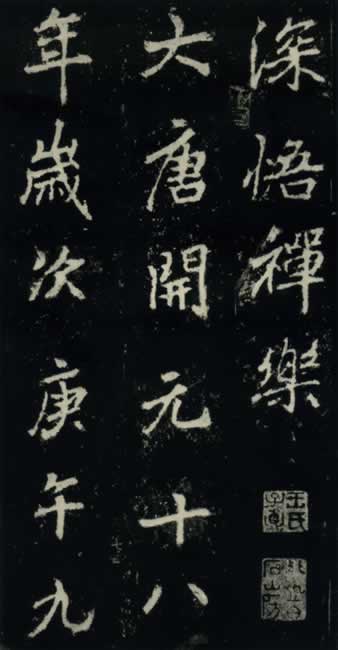 深悟禪樂
大唐開元十八
年歲次庚午九